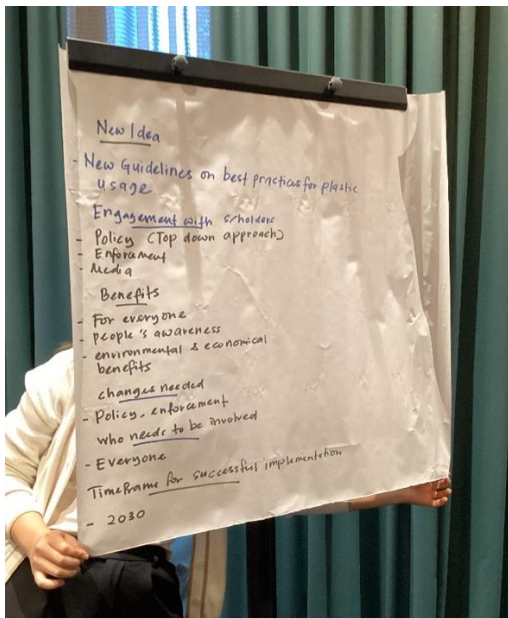 New Idea
- New Guidelines on best practices for plastic
usage
Engagement with s/holders
- Policy (Top down approach)
- Enforcement
- Media
Benefits
- For everyone
- people's awareness
- environmental & economical
benefits
changes needed
- Policy, enforcement
who needs to be involved
- Everyone
Timeframe for successful implementation
- 2030